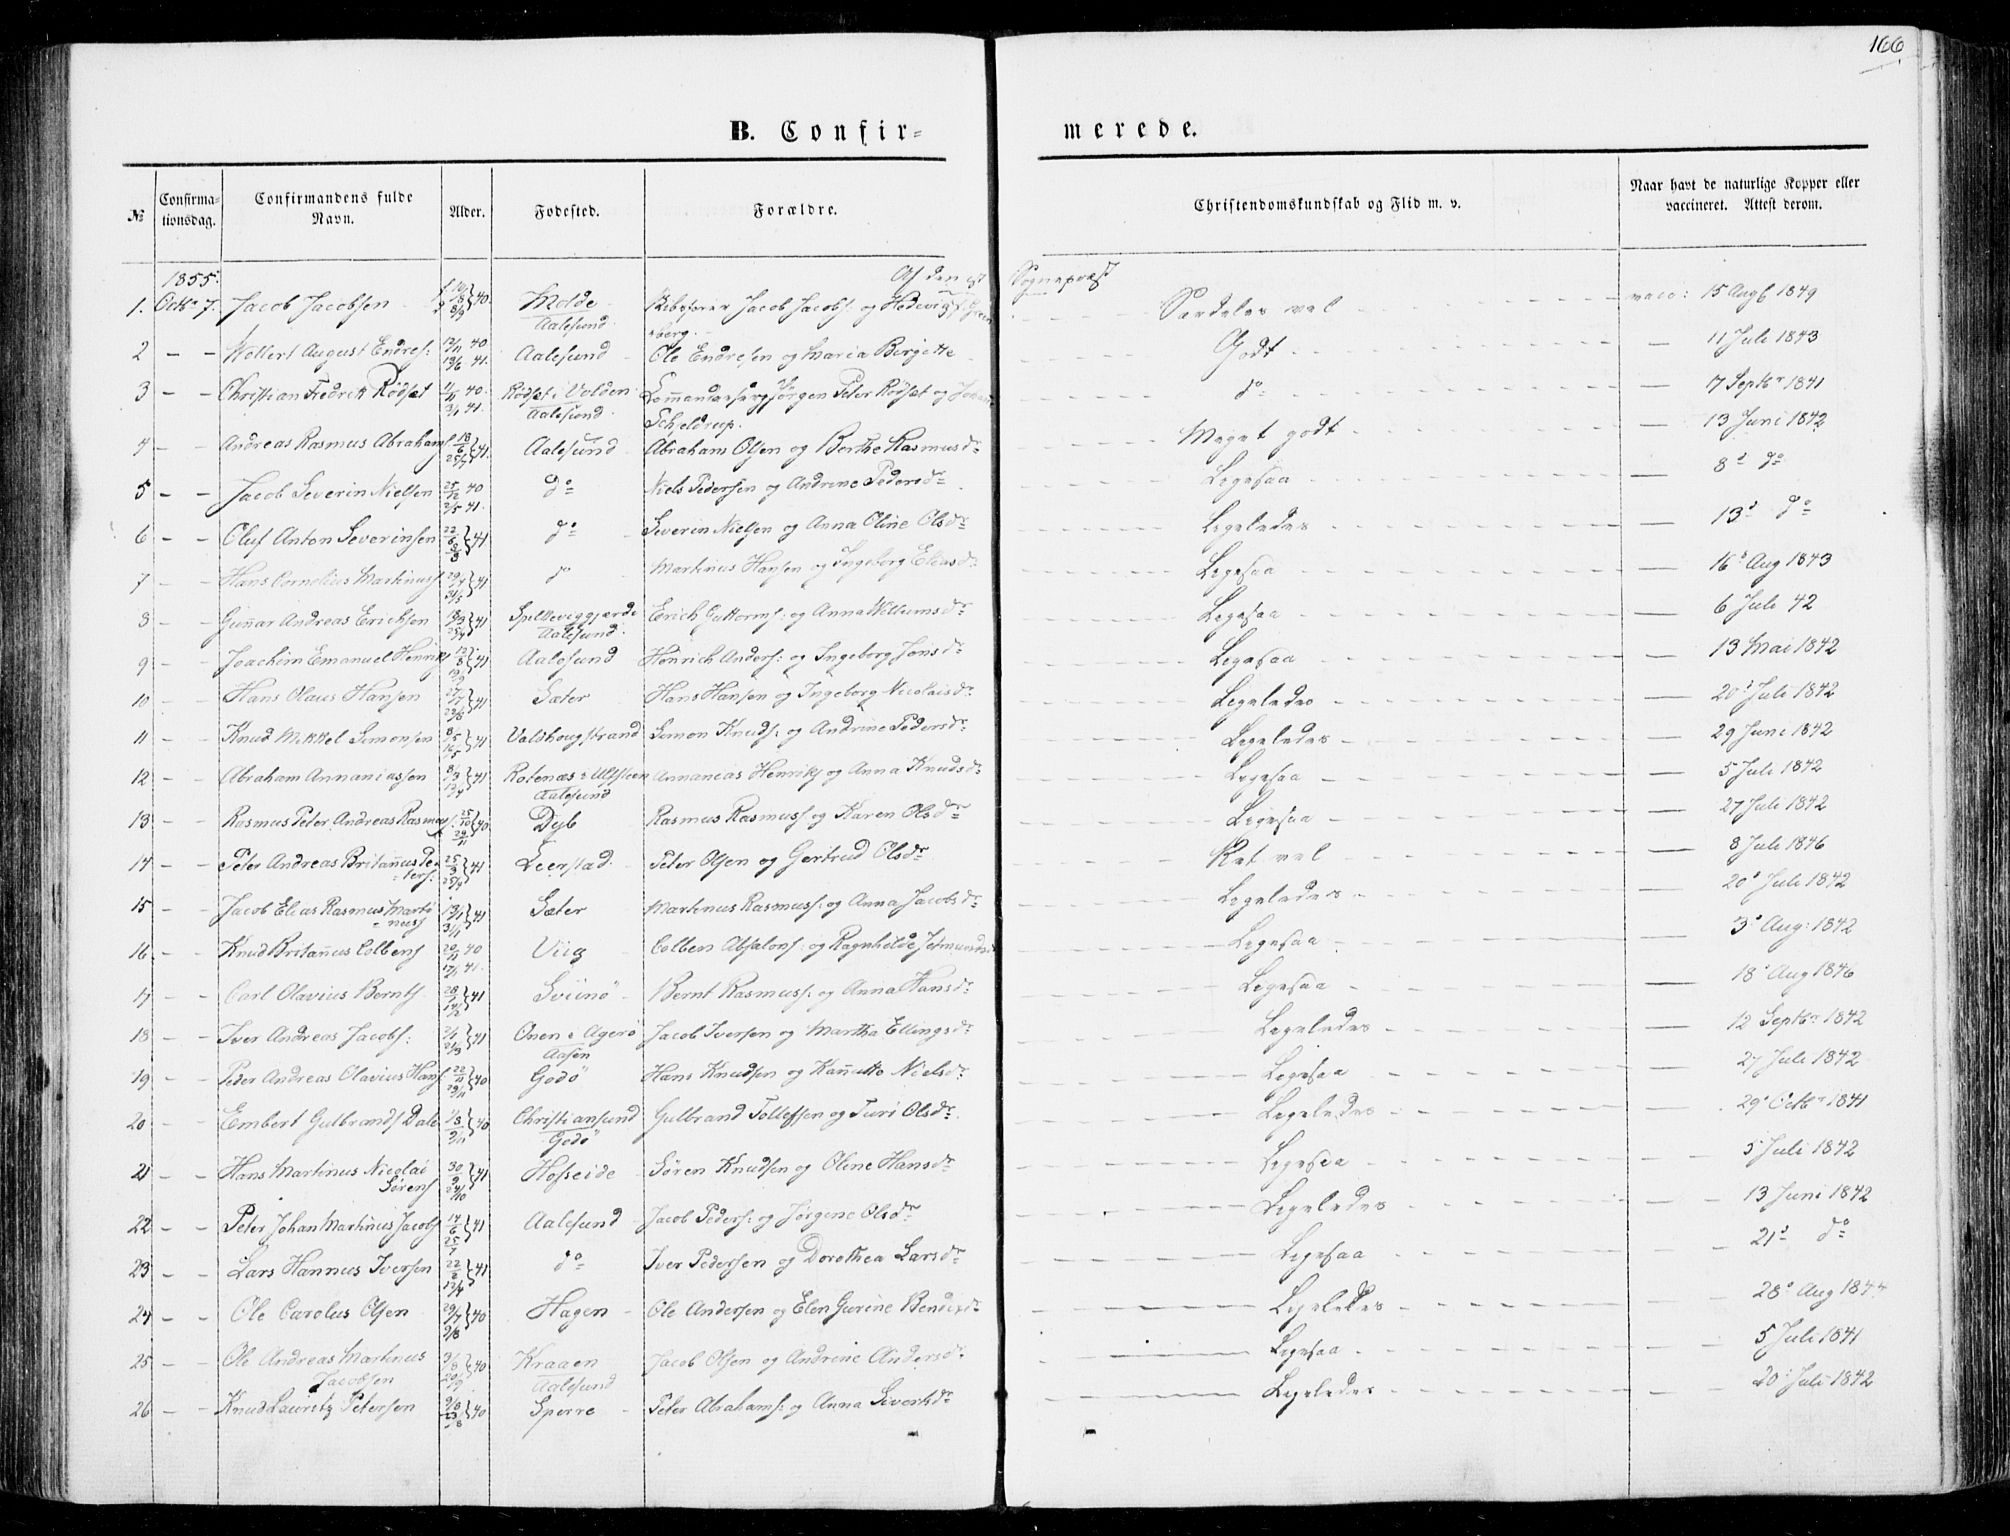 166
B. Confir=
merede.
№ Confirma-tionsdag. Confirmandens fulde Navn. Alder. Fødested. Forældre. Christendomskundskab og Flid m. v. Naar havt de naturlige Kopper eller vaccineret. Attest derom.
1855: Af den Sognepræst
1. Octbr 7. Jacob Jacobsen 40. Molde Aalesund Skibsfører Jacob Jacobs: og Hedevig berg. Særdeles vel vacc: 15 Aug 1849
2 – – Wollert August Endres: 12/11 40 13/6 41. Aalesund Ole Endresen og Maria Birgitte Godt — 11 Juli 1843
3 – – Christian Fredrik Rødset 1/11 40. 3/1 41. Rødset i Volden Aalesund Jørgen Peter Rødset og Scheldrup. do — 17 Septbr 1841
4 – – Andreas Rasmus Abrahams 41. Aalesund Abraham Olsen og Berthe Rasmusdr Meget godt — 13 Juni 1842
5 – – Jacob Severin Nielsen 25/12 40 2/5 41. do Niels Pedersen og Andrine Pedersdr Ligesaa — 8d do
6 – – Oluf Anton Severinsen 41 do Severin Nielsen og Anna Oline Olsdr Ligeledes — 13d do
7 – – Hans Cornelius Martinuss 41 do Martinus Hansen og Ingeborg Eliasdr Ligesaa — 16d Aug 1843
8 – – Gunnar Andreas Ericksen 41 Spilkeviggjærde Aalesund. Erich Guttorms: og Anna Willumsdr Ligesaa — 6 Juli 42
9 – – Joachim Emanuel Henriks 41 Aalesund Henrich Anders: og Ingeborg Jonsdr Ligesaa — 13 Mai 1842
10 – – Hans Olaus Hansen 41 Sæter Hans Hansen og Ingeborg Nicolaisdr Ligeledes — 20d Juli 1842
11 – – Knud Mikkel Simonsen 41 Valshougstrand Simon Knuds: og Andrine Pedersdr Ligeledes — 29 Juni 1842
12 – – Abraham Annaniassen 41 Rotenæs i Ulfsteen Aalesund Annanias Henriks og Anna Knudsdr Ligesaa — 5 Juli 1842
13 – – Rasmus Peter Andreas Rasmuss. 40 Dyb Rasmus Rasmuss og Karen Olsdr Ligesaa — 27 Juli 1842
14 – – Peter Andreas Britannus Pe=ters: 41 Leerstad Peter Olsen og Gertrud Olsdr Ret vel — 8 Juli 1846
15 – – Jacob Elias Rasmus Marti=nuss 41 Sæter Martinus Rasmuss: og Anna Jacobsdr Ligeledes — 20d Juli 1842
16 – – Knud Britannus Colbens 20/11 40 17/1 41. Viig Colben Absalons: og Ragnhilde Jetmundsd Ligesaa — 3d Aug: 1842
17 – – Carl Olavius Bernts 41 Sviinö Bernt Rasmuss: og Anna Hansdr Ligesaa — 18d Aug 1846
18 – – Iver Andreas Jacobs: 41 Onen i Agerö Aasen Jacob Iversen og Martha Ellingsdr Ligeledes — 12 Septbr 1842
19 – – Peder Andreas Olavius Hans 40 Godö Hans Knudsen og Kannutte Nielsdr Ligesaa — 27 Juli 1842
20 – – Embert Gulbrands Dale 40 Christiansund Godö Gulbrand Tollefsen og Turi Olsdr Ligeledes — 29d Octbr 1841
21 – – Hans Martinus Nicolai Sörens 41 Hofseide Sören Knudsen og Oline Hansdr Ligesaa — 5 Juli 1842
22 – – Peter Johan Martinus Jacobs 41 Aalesund Jacob Peders: og Jørgine Olsdr Ligeledes — 13 Juni 1842
23 – – Lars Hannus Iversen 41 do Iver Pedersen og Dorothea Larsdr Ligesaa – 21d do
24 – – Ole Carolus Olsen 40 Hagen Ole Andersen og Elen Gurine Bendixdr Ligeledes — 28d Aug 1844
25 – – Ole Andreas Martinus Jacobsen 40 Kraaen Aalesund Jacob Olsen og Andrine Andersdr Ligesaa — 5 Juli 1841
26 – – Knud Lauritz Petersen 40 Sperre Peter Abrahams: og Anna Sivertsdr Ligeledes — 20 Juli 1842